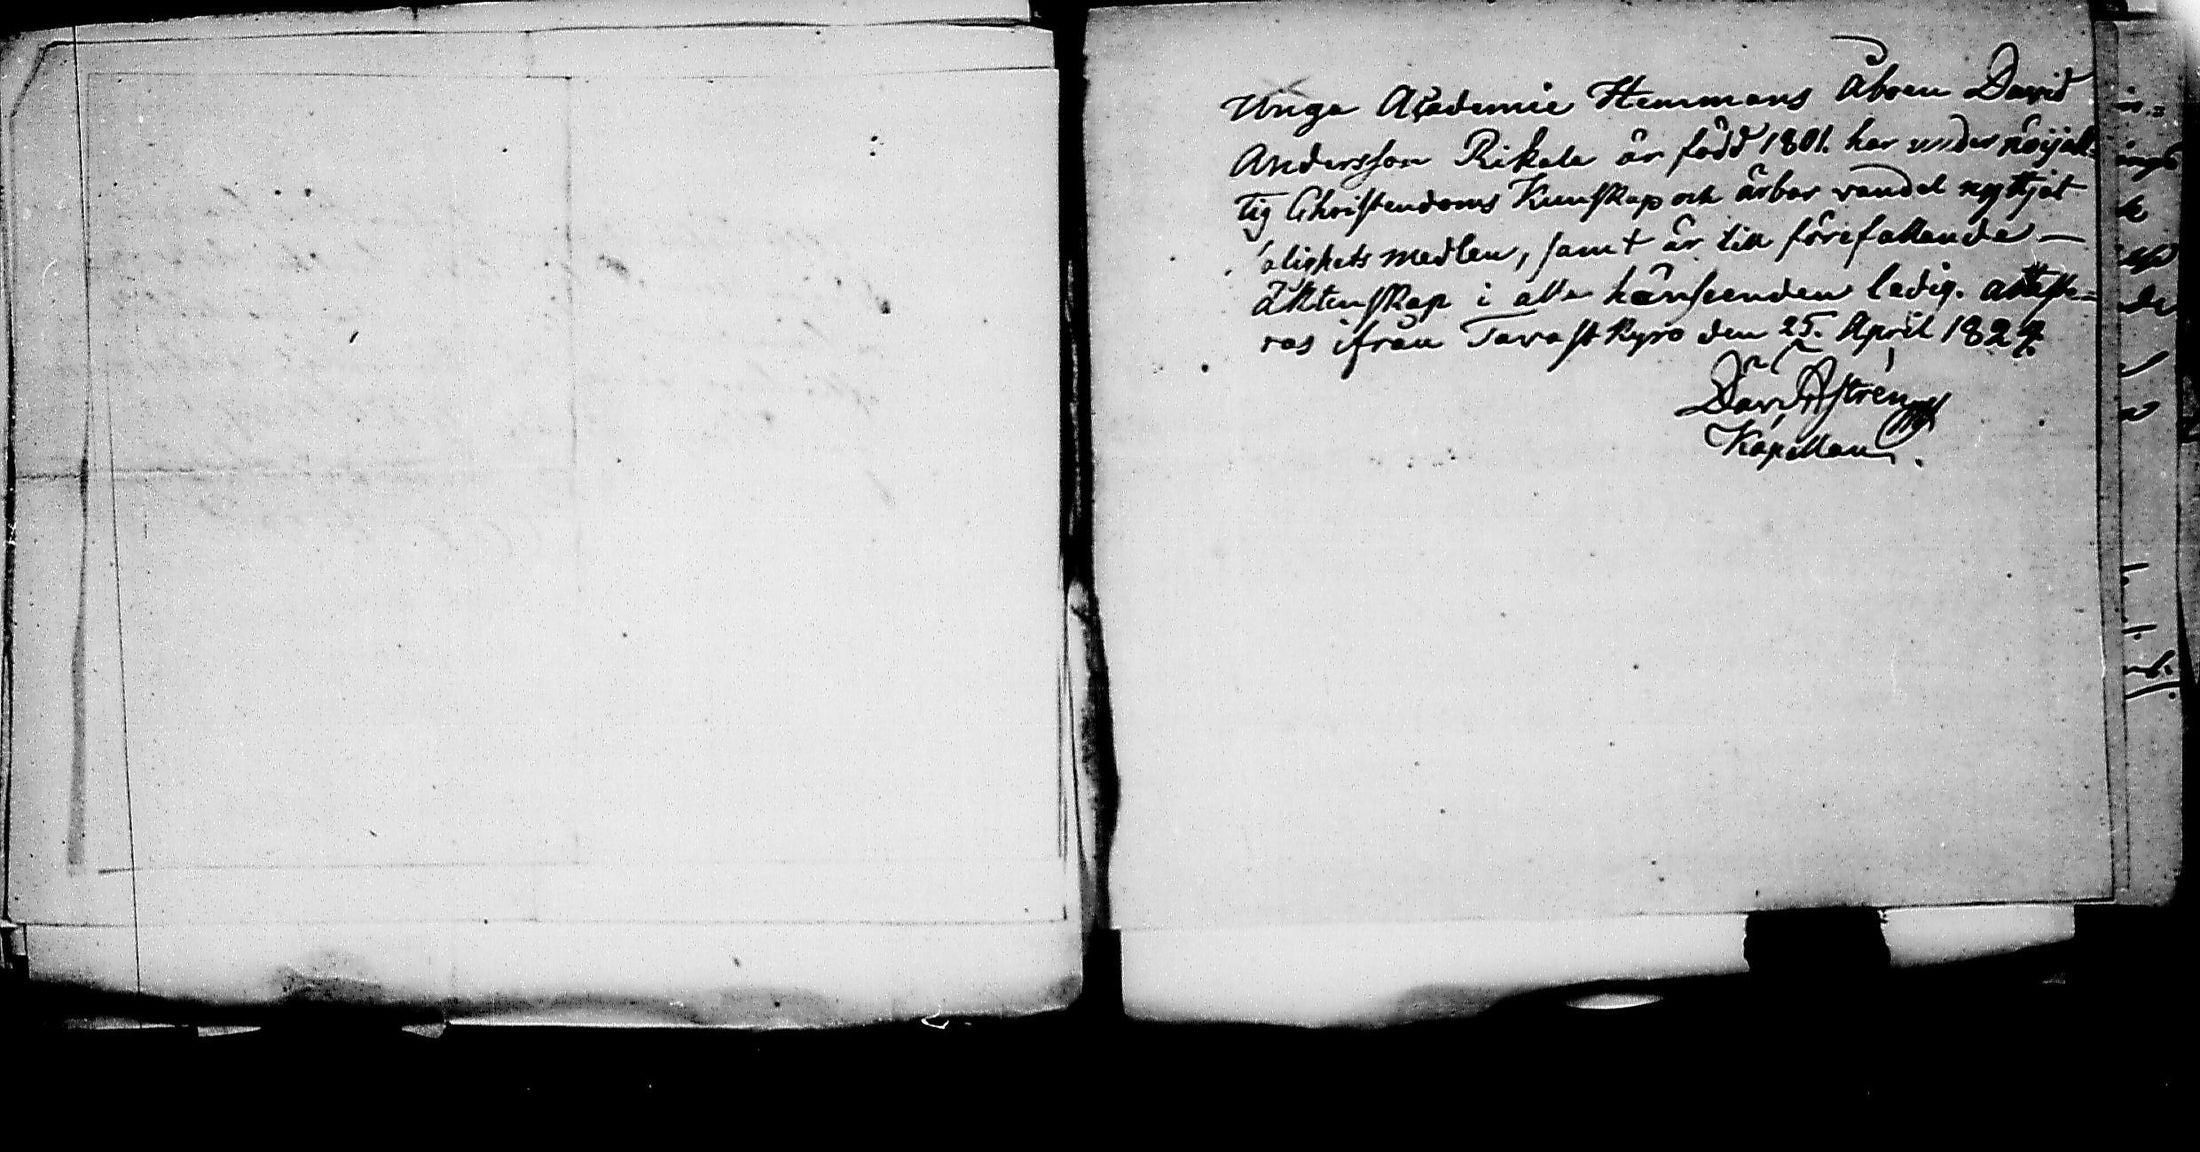 Unga Academie Hemmans Åboen David
Andersson Rikala är född 1801. har under nöijak-
tig Christendoms Kunskap och ärbar vandel nyttjat
salighets medlen, samt är till förefallande —
Äktenskap i alla hänseenden ledig. atteste-
ras ifrån Tavastkyro den 25. April 1824.
Dav. Astrén
Kapellan.